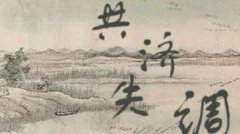 共济失调